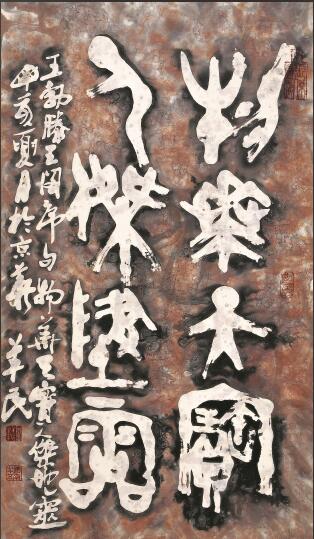 物華天寶
人傑地靈
王勃滕王閣序句物華天寶人傑地靈
辛亥夏月於京華羊民